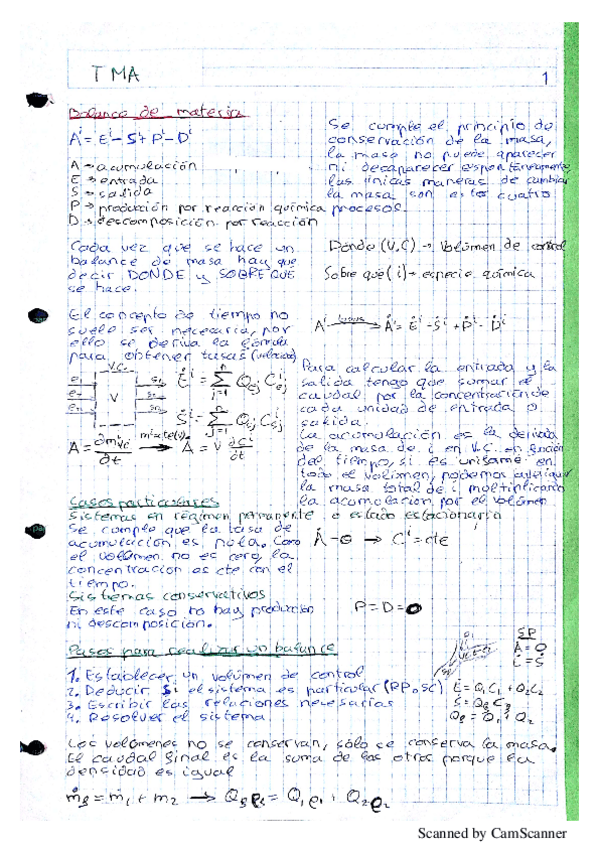 TMA
1
Balance de materia
Aⁱ = Eⁱ - Sⁱ + Pⁱ - Dⁱ
A → acumulación
E → entrada
S → salida
P → producción por reacción química
D → descomposición por reacción
Se cumple el principio de
conservación de la masa,
la masa no puede aparecer
ni desaparecer espontáneamente,
las únicas maneras de cambiar
la masa son estos cuatro
procesos.
Cada vez que se hace un
balance de masa hay que
decir DONDE y SOBRE QUE
se hace.
Dónde (V.C) → Volúmen de control
Sobre qué (i) → especie química
El concepto de tiempo no
suele ser necesario, por
ello se deriva la fórmula
para obtener tasas (velocidad)
Aⁱ → Ȧⁱ = Ėⁱ - Ṡⁱ + Ṗⁱ - Ḋⁱ
V.C.
e₁
e₂
V
Ėⁱ = Σ Qej Cⁱej
j=1
n
Ṡⁱ = Σ Qsj Cⁱsj
j=1
Ȧ = ∂mⁱvc / ∂t → Ȧ = V ∂Cⁱ / ∂t
Para calcular la entrada y la
salida tengo que sumar el
caudal por la concentración de
cada unidad de entrada o
salida.
La acumulación es la derivada
de la masa de i en V.C. en función
del tiempo, si es uniforme en
todo el volúmen, podemos
la masa total de i multiplicando
la acumulación por el volúmen
Casos particulares
Sistemas en régimen permanente o estado estacionario
Se cumple que la tasa de
acumulación es nula. Como
el volúmen no es cero, la
concentración es cte con el
tiempo.
Ȧ = 0 → Cⁱ = cte
Sistemas conservativos
En este caso no hay producción
ni descomposición.
P = D = 0
Pasos para realizar un balance
1. Establecer un volúmen de control
2. Deducir si el sistema es particular (RP o SC)
3. Escribir las relaciones necesarias
4. Resolver el sistema
Ȧ = 0
Ė = Ṡ
Ė = Q₁C₁ + Q₂C₂
Qf = Q₁ + Q₂
Los volúmenes no se conservan, sólo se conserva la masa.
El caudal final es la suma de los otros porque la
densidad es igual
ṁf = ṁ₁ + ṁ₂ → Qfρf = Q₁ρ₁ + Q₂ρ₂
Scanned by CamScanner